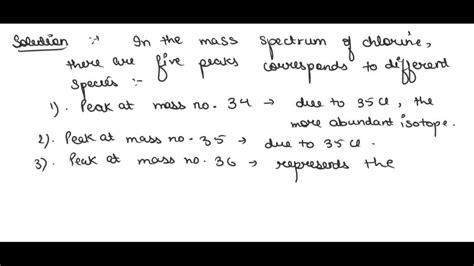 Solution :- In the mass spectrum of chlorine,
there are five peaks corresponds to different
species :-
1). Peak at mass no. 34 → due to 35 Cl, the
more abundant isotope.
2). Peak at mass no. 35 → due to 35 Cl.
3). Peak at mass no. 36 → represents the